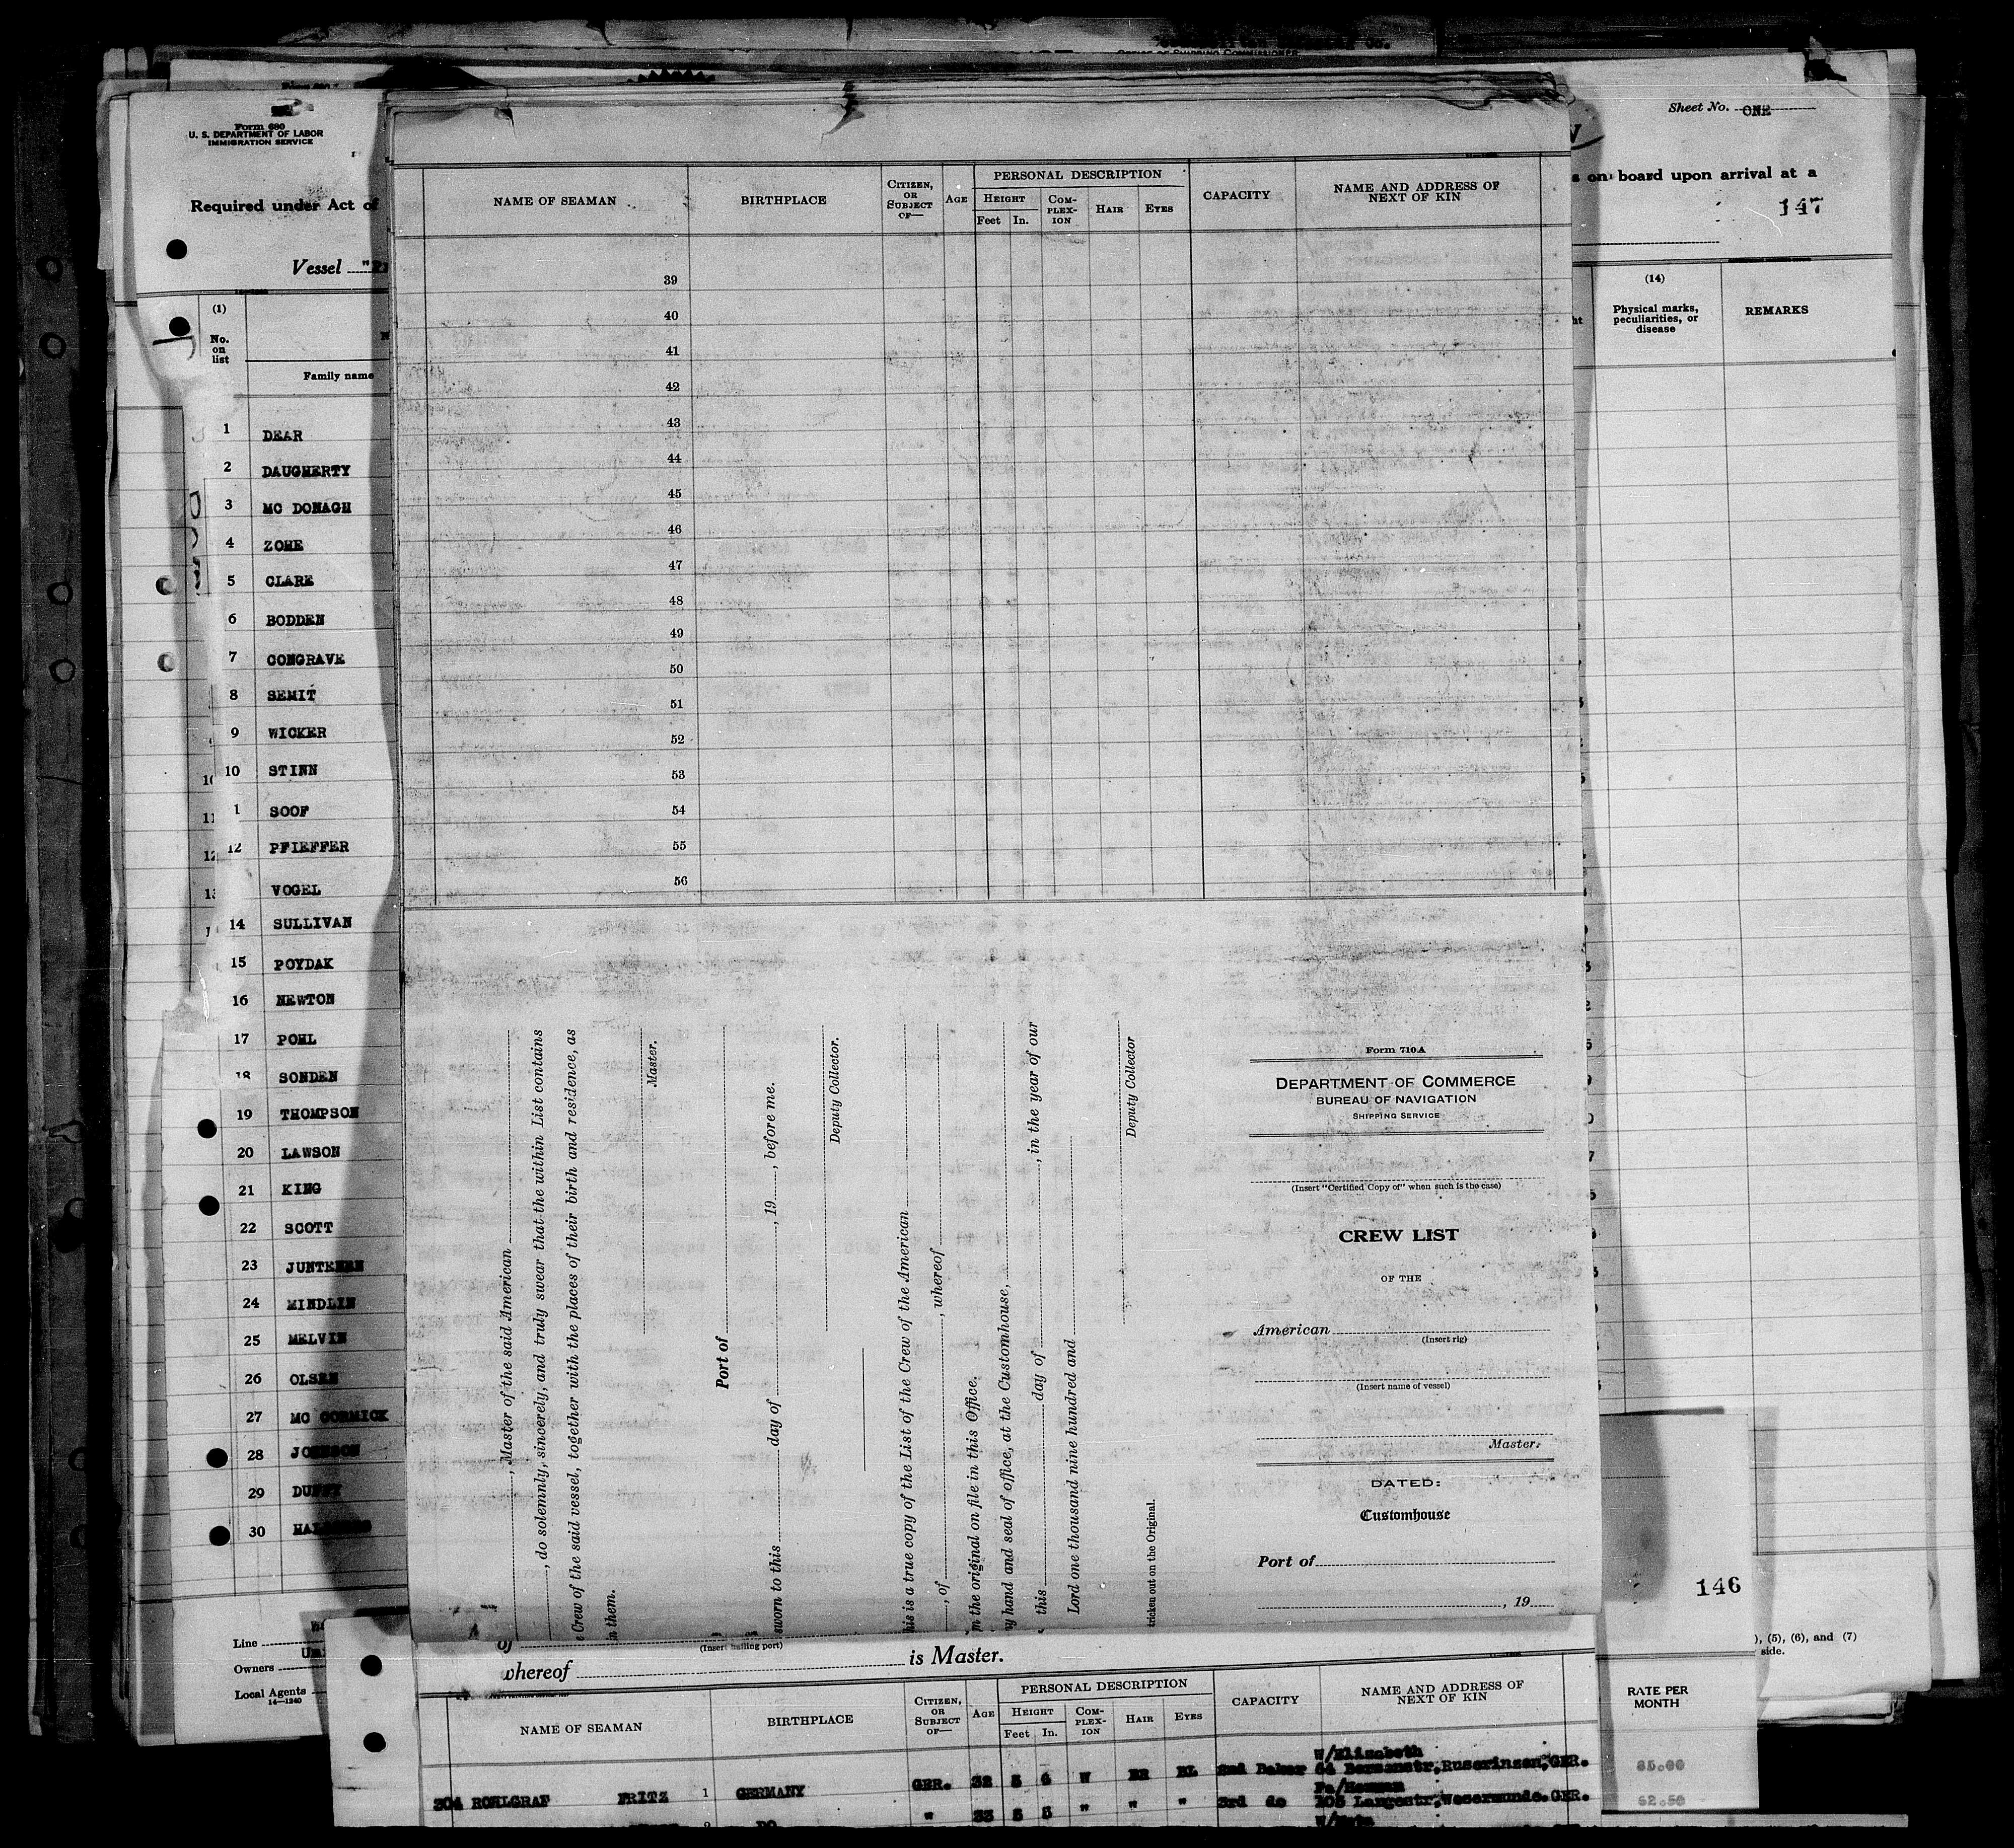 OFFICE OF SHIPPING COMMISSIONER
Form 680
U. S. DEPARTMENT OF LABOR
IMMIGRATION SERVICE
Required under Act of
Vessel
Sheet No. ONE
s on board upon arrival at a
147
(1)
No.
on
list
Family name
(14)
Physical marks,
peculiarities, or
disease
REMARKS
1 DEAR
2 DAUGHERTY
3 MC DONAGH
4 ZOHE
5 CLARE
6 BODDEN
7 CONGRAVE
8 SEMIT
9 WICKER
10 STINN
1 SOOF
12 PFIEFFER
VOGEL
14 SULLIVAN
15 POYDAK
16 NEWTON
17 POHL
18 SONDEN
19 THOMPSON
20 LAWSON
21 KING
22 SCOTT
23
24 MINDLIN
25 MELVIN
26 OLSEN
27 MC CORMICK
28 JOHNSON
29 DUFFY
30
Line
Owners
Local Agents
14—1240
NAME OF SEAMAN
BIRTHPLACE
CITIZEN,
OR
SUBJECT
OF—
AGE
PERSONAL DESCRIPTION
HEIGHT
Feet In.
COM-
PLEX-
ION
HAIR
EYES
CAPACITY
NAME AND ADDRESS OF
NEXT OF KIN
39
40
41
42
43
44
45
46
47
48
49
50
51
52
53
54
55
56
, Master of the said American
, do solemnly, sincerely, and truly swear that the within List contains
Crew of the said vessel, together with the places of their birth and residence, as
n them.
Master.
Port of
sworn to this day of , 19 , before me.
Deputy Collector.
his is a true copy of the List of the Crew of the American
, of , whereof
m the original on file in this Office.
y hand and seal of office, at the Customhouse,
this day of , in the year of our
Lord one thousand nine hundred and
Deputy Collector
tricken out on the Original.
Form 710A
DEPARTMENT OF COMMERCE
BUREAU OF NAVIGATION
SHIPPING SERVICE
(Insert "Certified Copy of" when such is the case)
CREW LIST
OF THE
American
(Insert rig)
(Insert name of vessel)
Master.
DATED:
Customhouse
Port of
, 19
146
), (5), (6), and (7)
side.
of
(Insert hailing port)
whereof is Master.
NAME OF SEAMAN
BIRTHPLACE
CITIZEN,
OR
SUBJECT
OF—
AGE
PERSONAL DESCRIPTION
HEIGHT
Feet In.
COM-
PLEX-
ION
HAIR
EYES
CAPACITY
NAME AND ADDRESS OF
NEXT OF KIN
RATE PER
MONTH
W/Elisabeth
304 ROHLGRAF FRITZ 1 GERMANY GER. 32 5 6 W BR BL 2nd Baker GER. 85.00
Fa/Herman
" 33 5 5 " " " 3rd do 105 Langestr, Wesermunde. GER. 62.50
DO